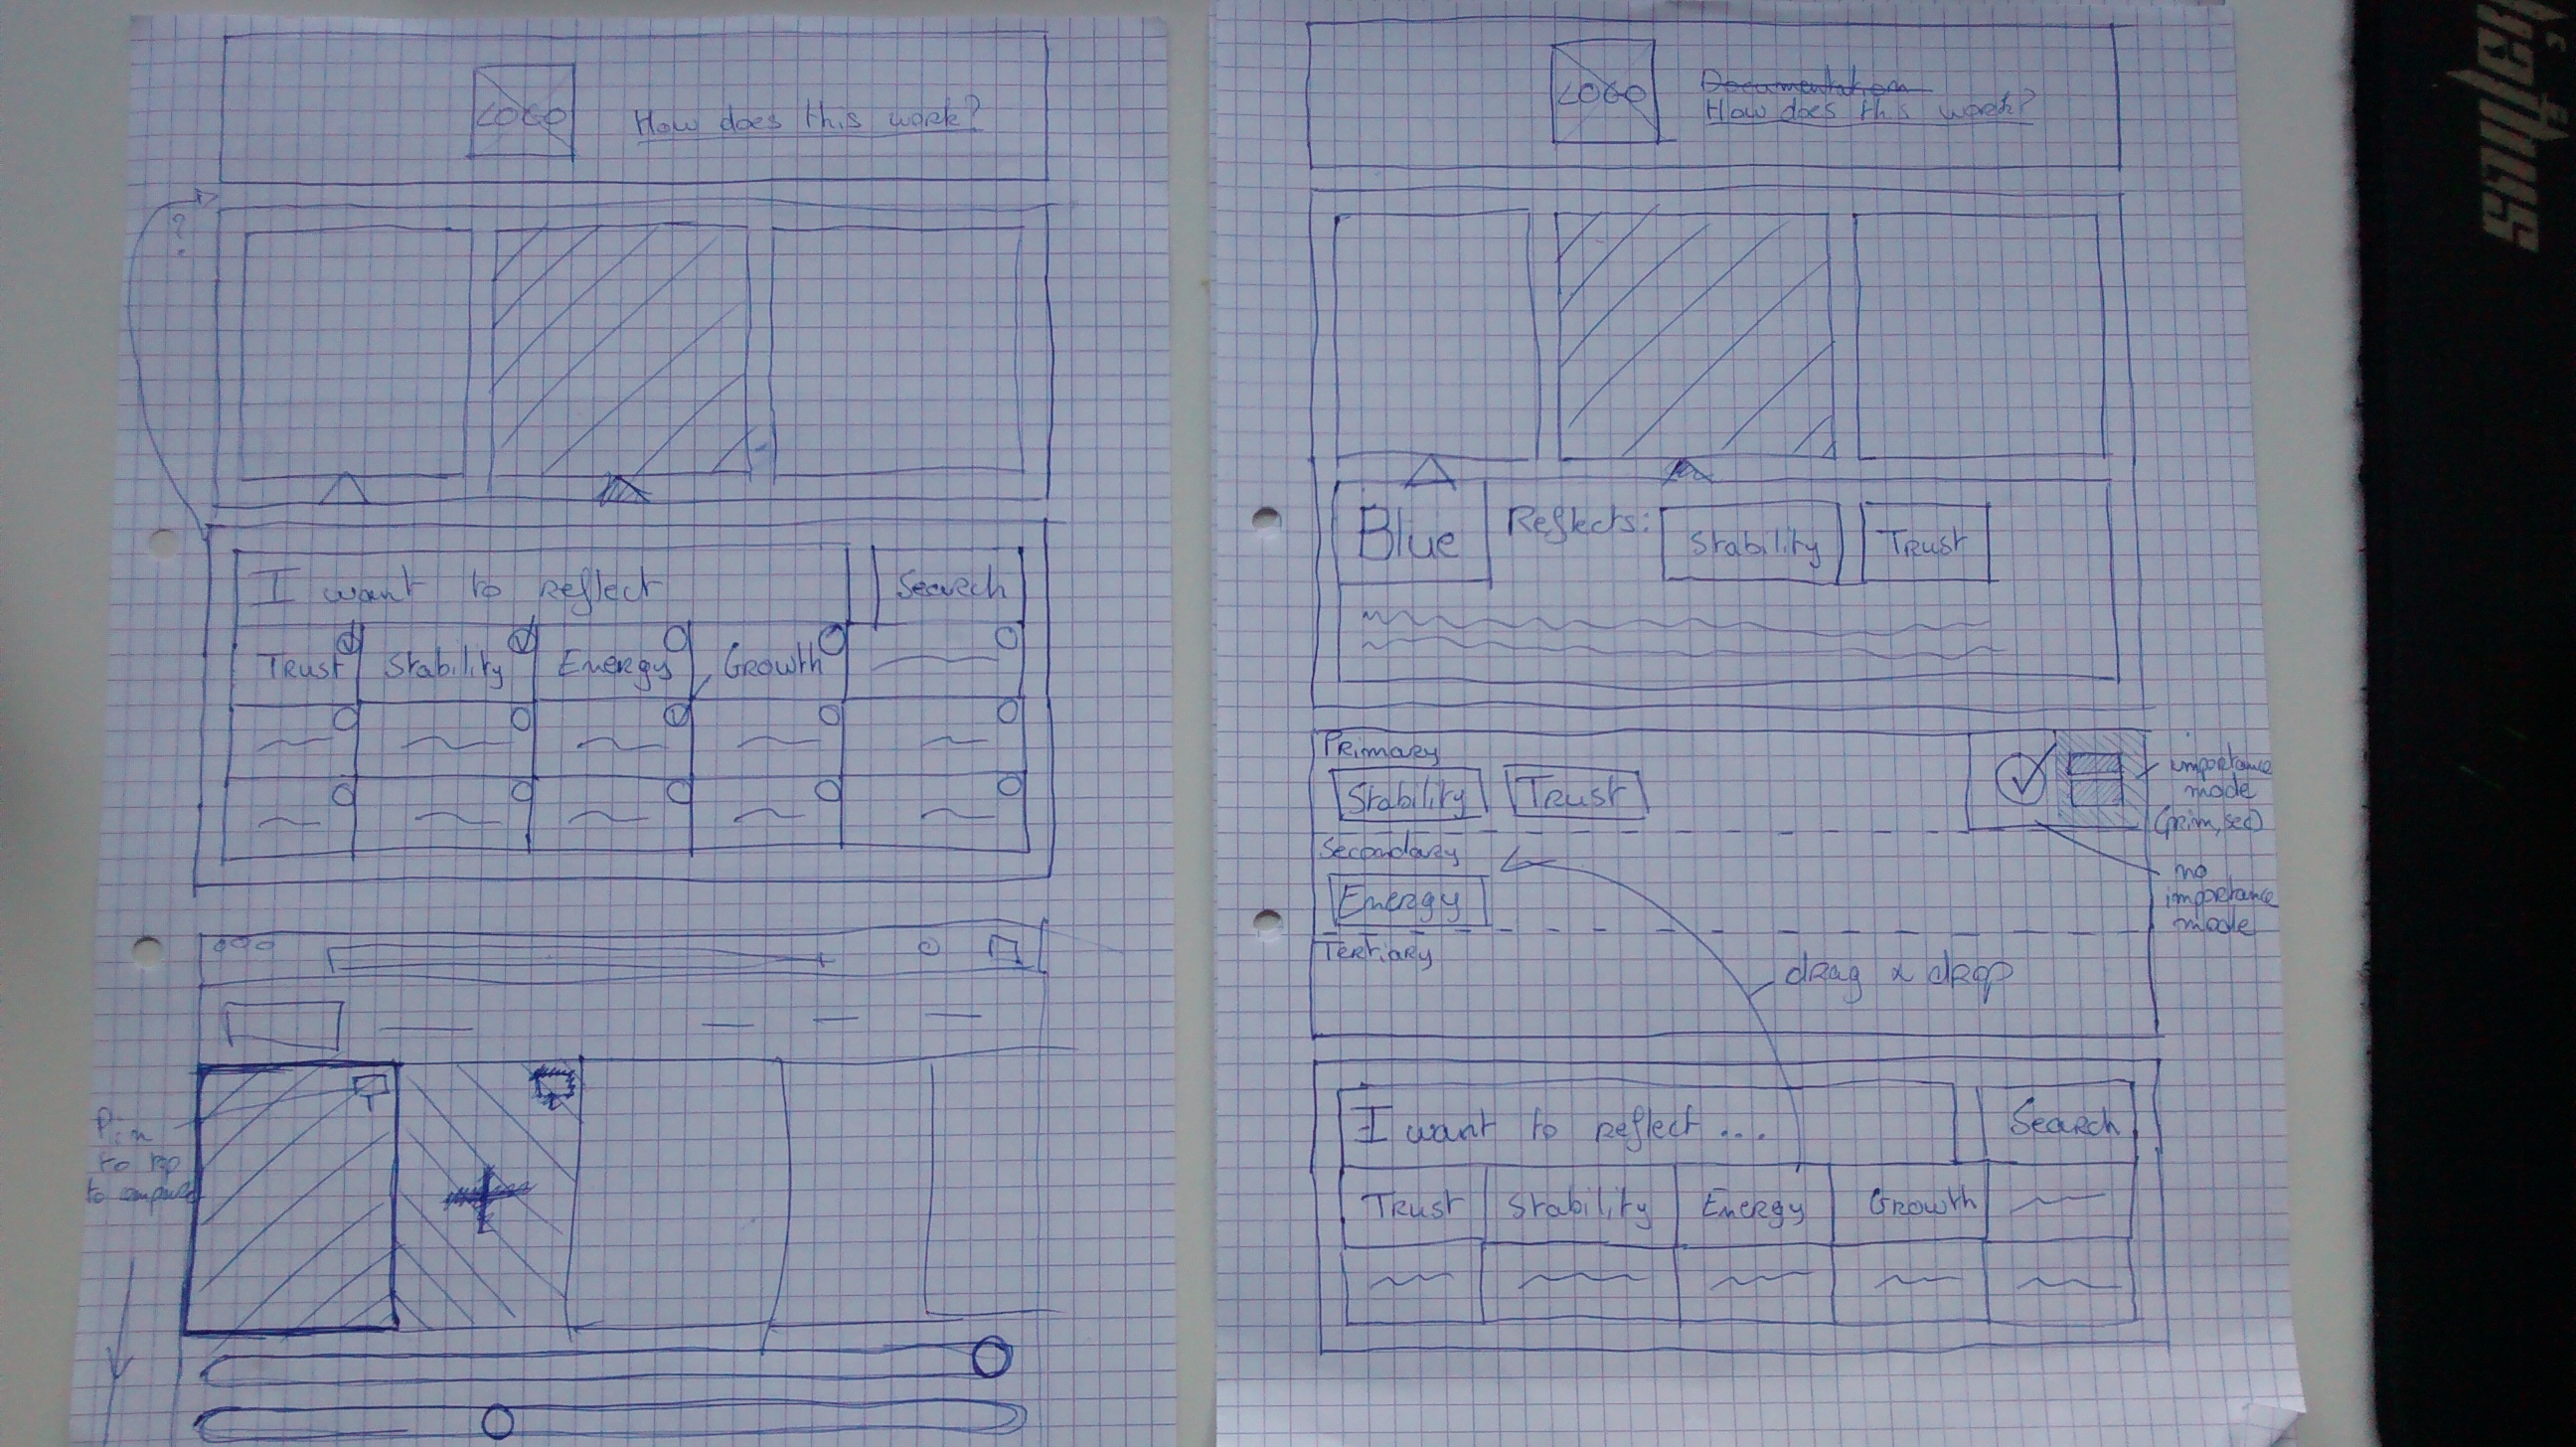 LOGO
How does this work?
?
I want to reflect
Search
Trust
Stability
Energy
Growth
Pin
to top
to compare
LOGO
Documentation
How does this work?
Blue
Reflects:
Stability
Trust
Primary
Stability
Trust
importance
mode
(prim, sec)
Secondary
Energy
no
importance
mode
Tertiary
drag & drop
I want to reflect ...
Search
Trust
Stability
Energy
Growth